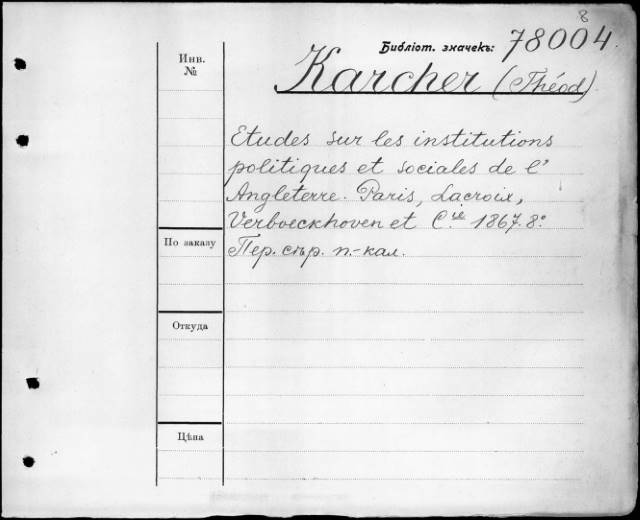 8
Библіот. значекъ: 78004.
Инв. №
Karcher (Théod).
Etudes sur les institutions
politiques et sociales de l'
Angleterre. Paris, Lacroix,
Verboeckhoven et C.ie 1867. 8.º
По заказу
Пер. сѣр. п.-кал.
Откуда
Цѣна